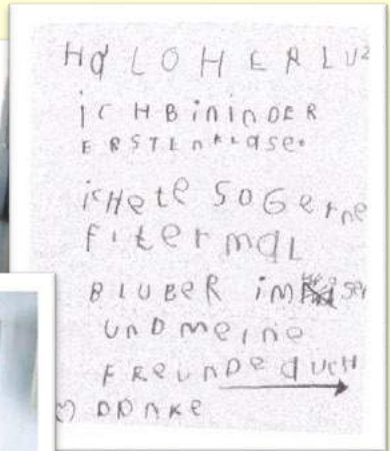 HaLOHERLUZ
iCHBiNiNDER
ERSTENKLaSe.
iCHeteSOGerne
FiLterMaL
BLUBeR iM
UNDMeiNe
FReUNDe aUCH
DaNKe